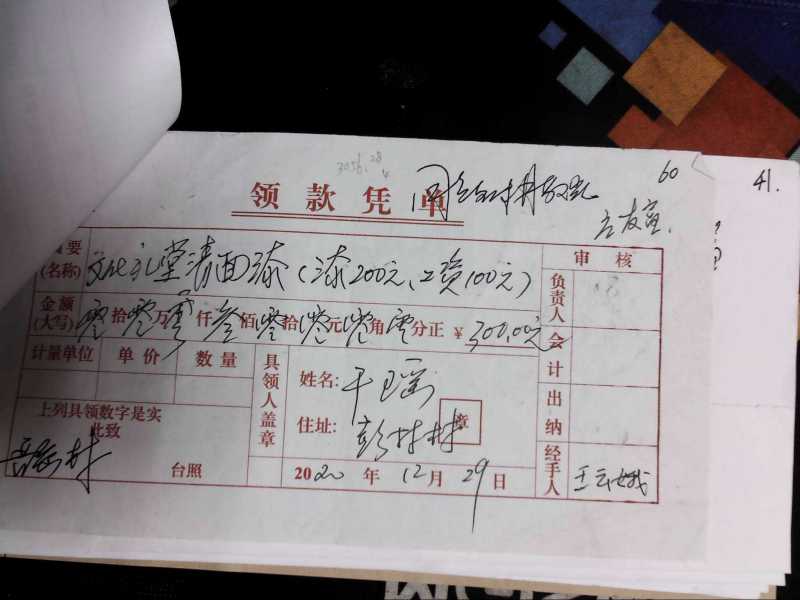 60
41.
领款凭单
摘要(名称) 文化礼堂清面漆(漆200元、工资100元)
审核
负责人
金额(大写) 零拾零万零仟叁佰零拾零元零角零分正 ¥ 300.00元
会计
计量单位 单价 数量
具领人盖章
姓名:
住址: 彭村村
章
出纳
上列具领数字是实
此致
台照
2020年12月29日
经手人 王云娥